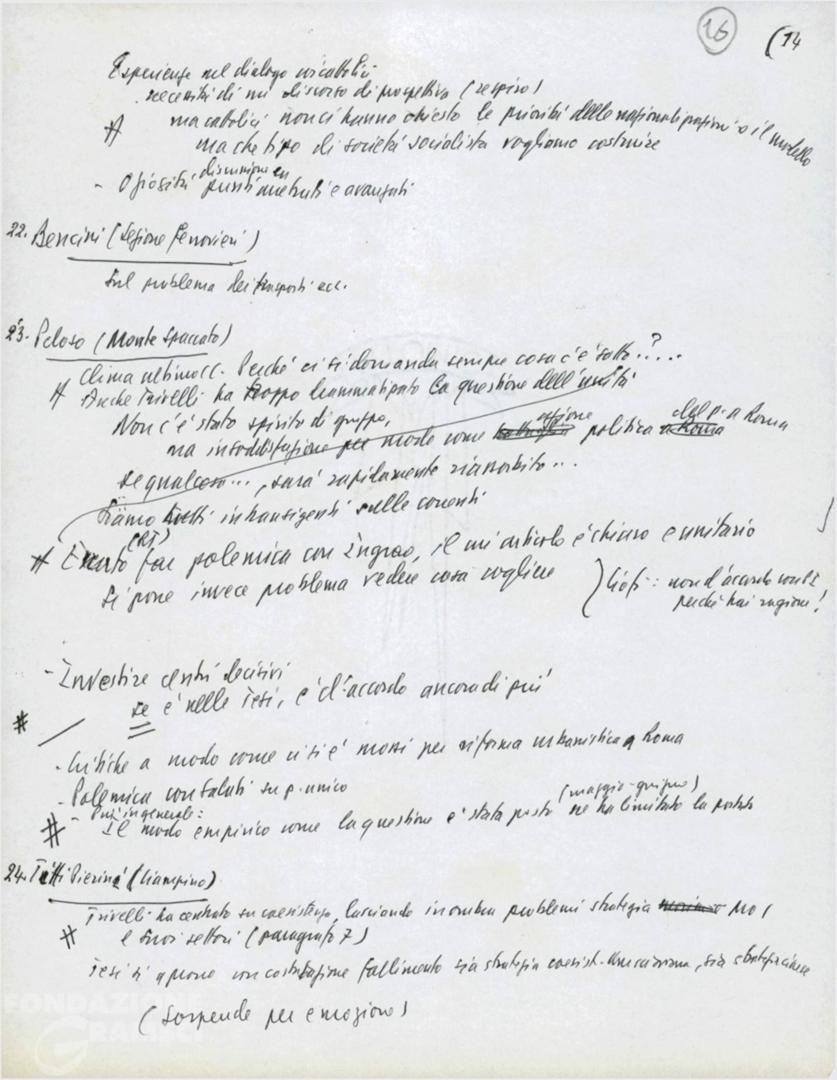 16 (14
Esperienze nel dialogo coi cattolici
necessità di un discorso di prospettiva (respiro)
ma cattolici non ci hanno chiesto le priorità delle nazionalizzazioni o il modello
ma che tipo di società socialista vogliamo costruire
discussione su
- Oziosità punti arretrati e avanzati
22. Bencini (Sezione Ferrovieri)
Sul problema dei trasporti ecc.
23. Peloso (Monte Spaccato)
Clima ultimo CC. Perché ci si domanda sempre cosa c'è sotto?...
Anche Trivelli ha troppo drammatizzato la questione dell'unità
Non c'è stato spirito di gruppo,
ma insoddisfazione per modo come azione politica del p. a Roma
se qualcosa..., sarà rapidamente riassorbito...
Siamo tutti intransigenti sulle correnti
# (RT) far polemica con Ingrao, il mi articolo è chiaro e unitario
Si pone invece problema vedere cosa vogliere
: non d'accordo con
perché hai ragione!
- Investire centri decisivi
se è nelle Tesi, è d'accordo ancora di più
#
- Critiche a modo come ci si è mossi per riforma urbanistica a Roma
- Polemica con Salati su p. unico
- Più in generale: (maggio-giugno)
# Il modo empirico come la questione è stata posta ne ha limitato la portata
24. Tetti Pierino (Ciampino)
Trivelli ha centrato su coesistenza, lasciando in ombra problemi strategia MO
# e suoi settori (paragrafo 7)
Tesi si aprono con constatazione fallimento sia strategia coesist. kruscioviana, sia strategia cinese
(Sospende per emozione)
FONDAZIONE
GRAMSCI